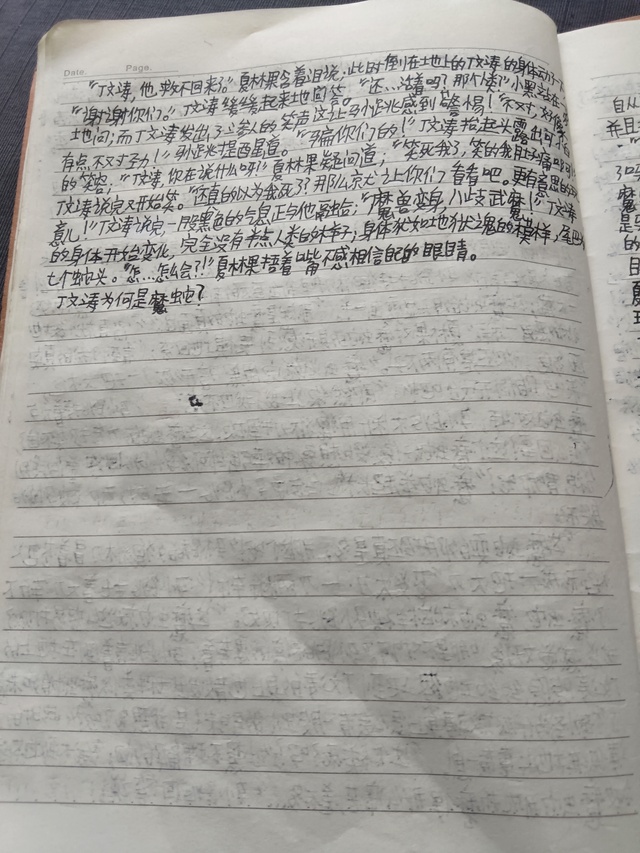 Date.    Page.
"丁文涛,他,救不回来了。"夏林果含着泪说,此时倒在土地上的丁文涛的身体动了
"谢谢你们。"丁文涛缓缓起来土地回答。"还…活着吗?那个人类?"小黑站在一
地问;而丁文涛发出了渗人的笑声这让马小跳感到警惕!"不对,好像
有点不对劲!"马小跳提西星道。"骗你们的!"丁文涛抬起头露出
的笑容;"丁文涛,你在说什么呀!"夏林果疑问道;"笑死我了,笑的我肚子痛
丁文涛说完又开始笑。"还真的以为我死了?那么就让你们看看吧。更有意思的
意儿!"丁文涛说完一股黑色的气息正与他离出;"魔兽变身,八歧武魔!"丁文涛
的身体开始变化,完全没有半点人类的样子;身体犹如地狱之鬼的模样,尾巴
七个蛇头。"怎…怎么会?!"夏林果捂着嘴不感相信自己的眼睛。
丁文涛为何是魔蛇?
自从
并且
"
了吗
魔
是
的
目